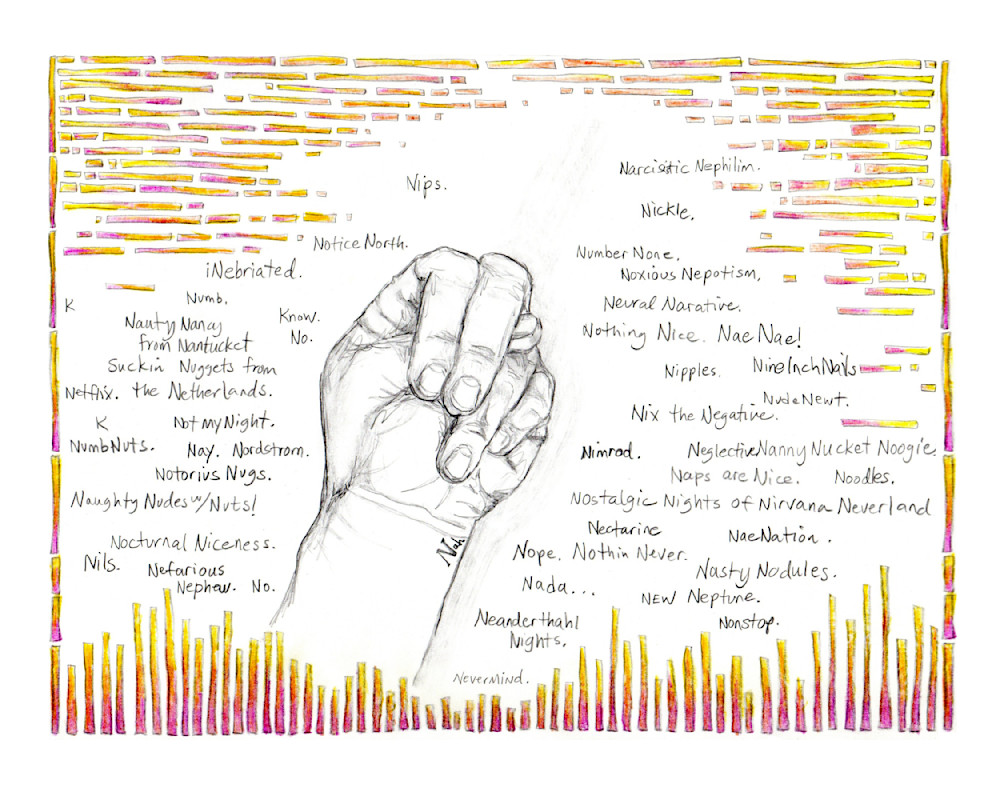 Nips.
Notice North.
iNebriated.
Numb.
K
Know.
No.
Nauty Nanay
from Nantucket
Suckin Nuggets from
Netflix. the Netherlands.
K
Not my Night.
NumbNuts. Nay. Nordstrom.
Notorius Nugs.
Naughty Nudes w/Nuts!
Nocturnal Niceness.
Nils. Nefarious
Nephew. No.
Nah
Narcisitic Nephilim.
Nickle.
Number None.
Noxious Nepotism,
Neural Narative.
Nothing Nice. Nae Nae!
Nipples. NineInchNails
NudeNewt.
Nix the Negative.
Nimrod. Neglective Nanny Nucket Noogie.
Naps are Nice. Noodles.
Nostalgic Nights of Nirvana Neverland
Nectarine NaeNation.
Nope. Nothin Never.
Nasty Nodules.
Nada...
NEW Neptune.
Neanderthahl
Nights.
Nonstop.
NeverMind.